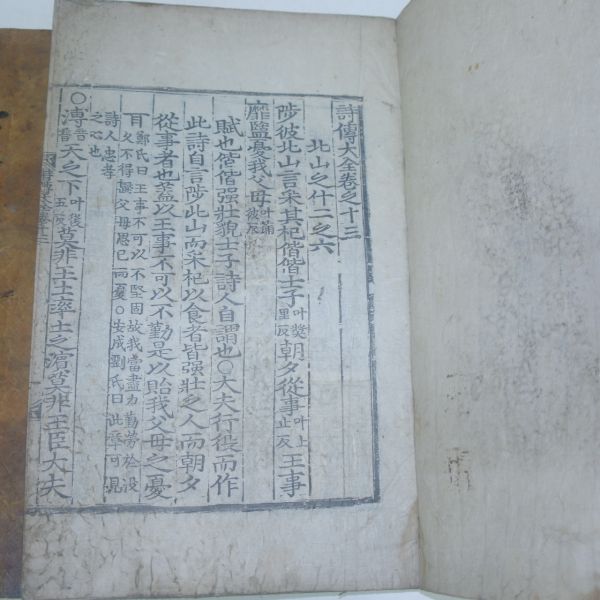 詩傳大全卷之十三
北山之什二之六
陟彼北山言采其杞偕偕士子叶奬里反朝夕從事叶上止反王事
靡盬憂我父母叶滿彼反
賦也偕偕强壯貌士子詩人自謂也○大夫行役而作
此詩自言陟北山而采杞以食者皆强壯之人而朝夕
從事者也蓋以王事不可以不勤是以貽我父母之憂
耳鄭氏曰王事不可以不堅固故我當盡力勤勞於役久不得歸父母思己而憂○安成劉氏曰此章可見
詩人忠孝之心也
○溥音普天之下叶後五反莫非王土率土之濱莫非王臣大夫